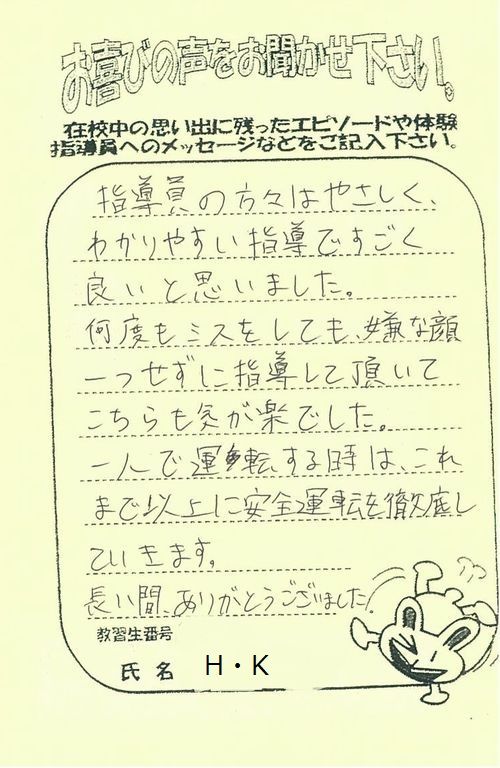 お喜びの声をお聞かせ下さい。
在校中の思い出に残ったエピソードや体験
指導員へのメッセージなどをご記入下さい。
指導員の方々はやさしく、
わかりやすい指導ですごく
良いと思いました。
何度もミスをしても、嫌な顔
一つせずに指導して頂いて
こちらも気が楽でした。
一人で運転する時は、これ
まで以上に安全運転を徹底し
ていきます。
長い間、ありがとうございました。
教習生番号
氏名 H・K